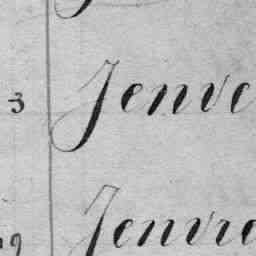 3 Jenve
Jenvre